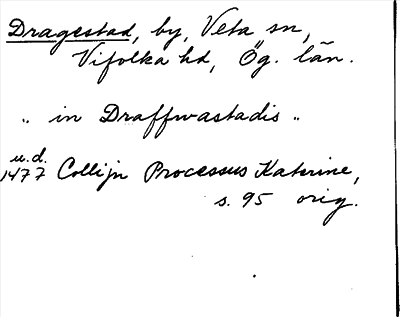 Dragestad, by, Veta sn,
Vifolka hd, Ög. län.
„ in Draffwastadis „
u.d.
1477 Collijn Processus Katerine,
s. 95 orig.